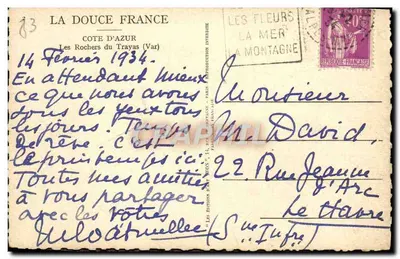 83
LA DOUCE FRANCE
COTE D'AZUR
Les Rochers du Trayas (Var)
14 Février 1934.
En attendant mieux
ce que nous avons
sous les yeux tous
les jours. Temps
de rêve. c'est
le printemps ici.
Toutes mes amitiés
à vous partager
avec les vôtres
LES FLEURS
LA MER
LA MONTAGNE
Monsieur
M. David.
22 Rue Jeanne
d'Arc
Le Havre
(Sne Infre)